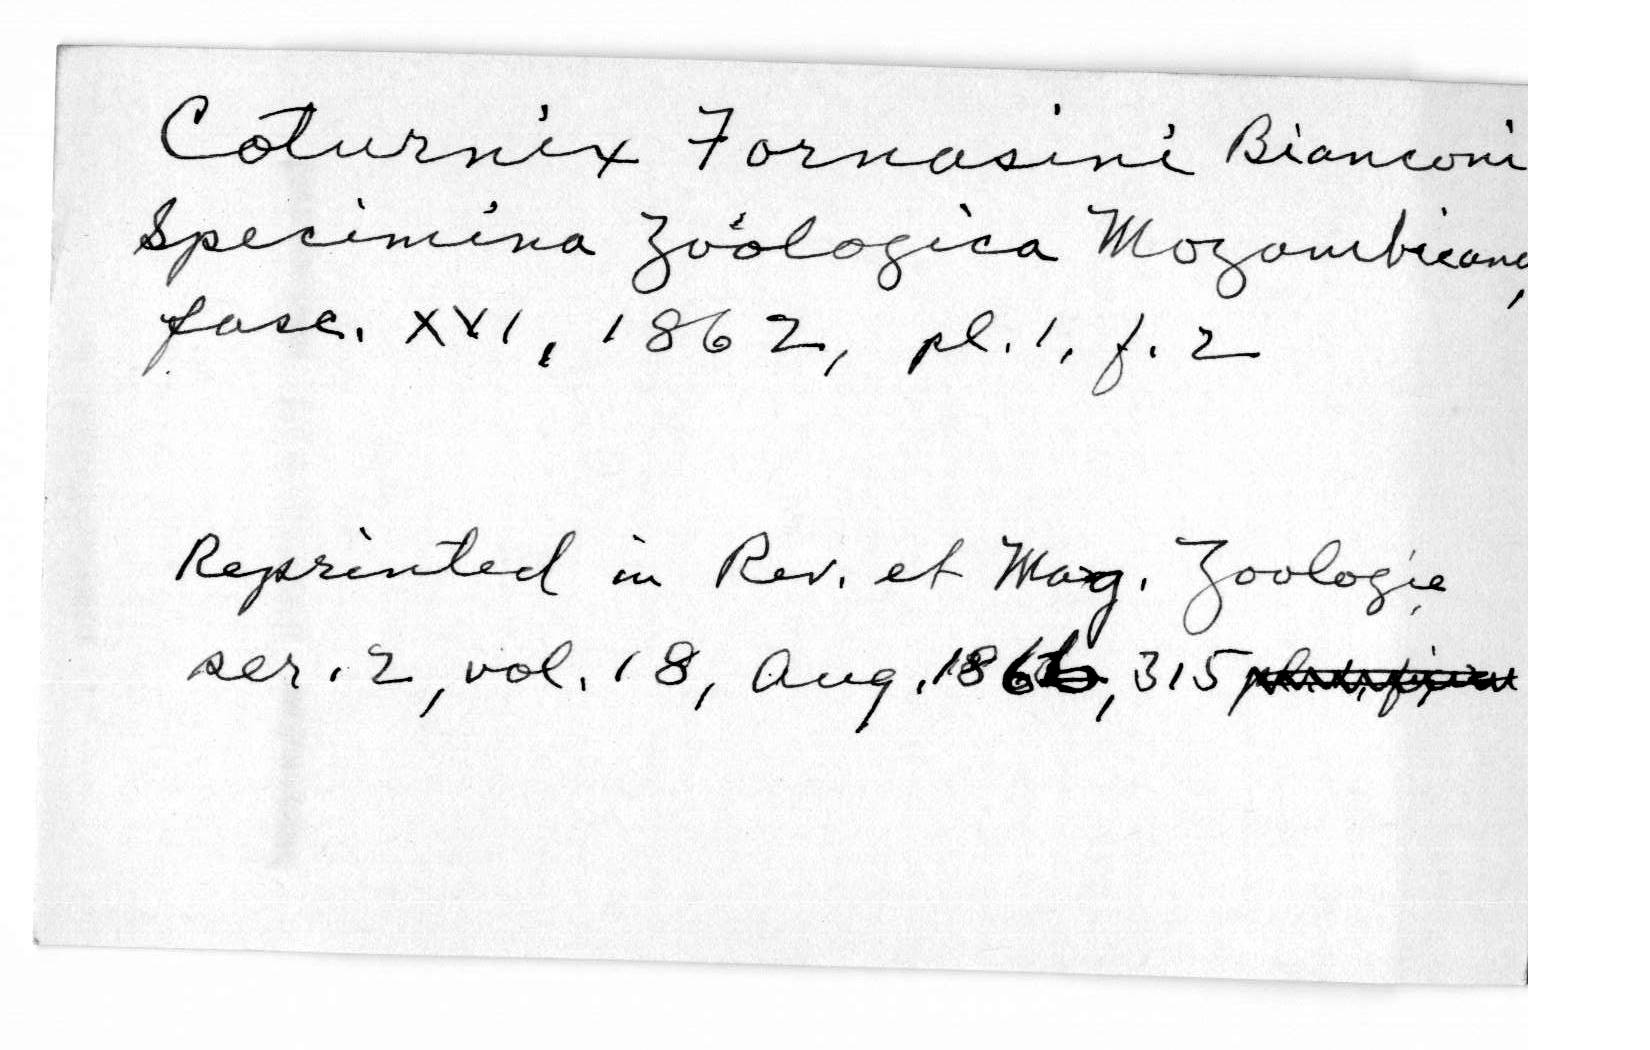 Coturnix Fornasini Bianconi
Specimina Zoölogica Mozambicana,
fasc. XVI, 1862, pl. 1, f. 2
Reprinted in Rev. et Mag. Zoologie
ser. 2, vol. 18, Aug. 1866, 315